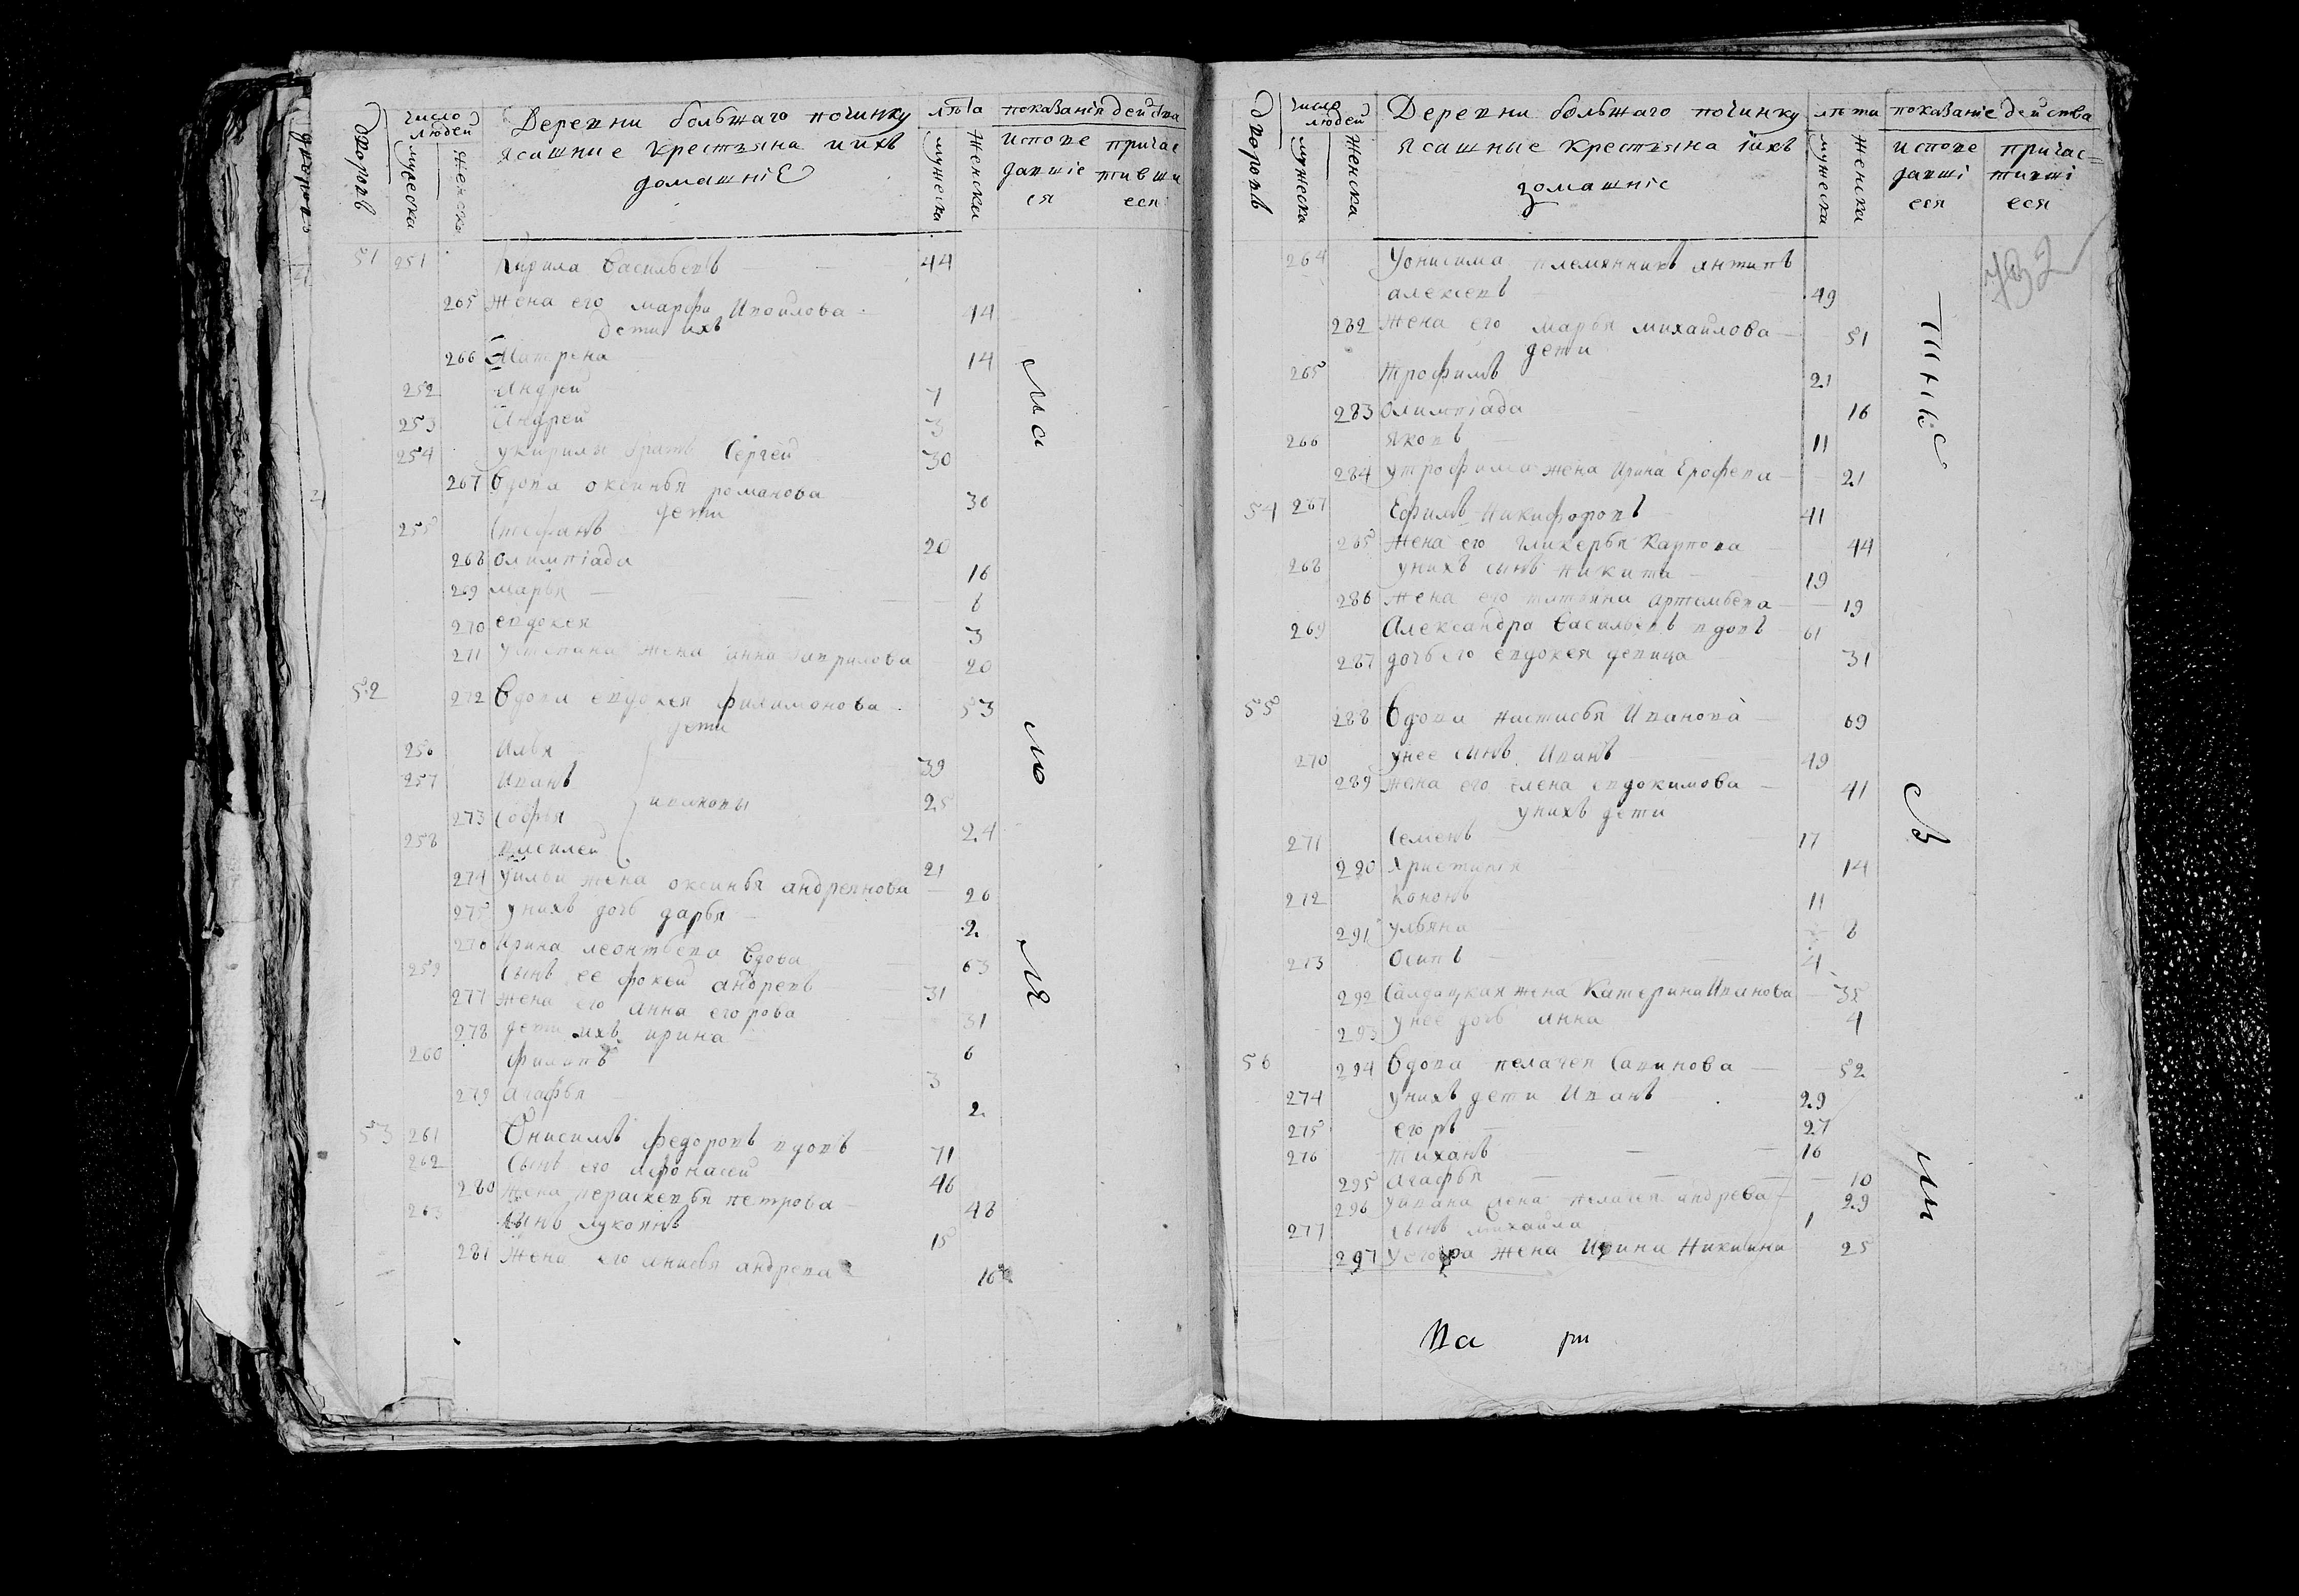 дворовъ
число людей
мужеска
женска
Деревни большаго починку
ясашние крестьяна и ихъ
домашніе
лѣта
мужеска
женски
показанія действа
испове
давшіе
ся
причас
тивши
еся
51 251 Кирила Васильевъ 44
265 жена его марфа 44
дети ихъ
266 Матрена 14
252 Андрей 7
253 Андрей 3
254 у кирилы братъ Сергей 30
267 вдова оксинья романова 36
дети
255 Стефанъ 20
268 олимпіада 16
269 марья 6
270 евдокея 3
271 у степана жена анна гаврилова 20
52 272 Вдова евдокея филимонова 53
дети
256 Илья 39
257 Иванъ 25
ивановы
273 Софья 24
258 21
274 у ильи жена оксинья андреянова 26
275 у нихъ дочь дарья 2
276 Ирина леонтьева вдова 63
259 Сынъ ее фокей андревъ 31
277 жена его анна егорова 31
278 дети ихъ ирина 6
260 филипъ 3
279 Агафья 2
53 261 Онисимъ федоровъ вдовъ 71
262 Сынъ его афонасей 46
280 жена параскевья петрова 48
263 сынъ лукоянъ 15
281 жена его анисья андрева 16
дворовъ
число людей
мужеска
женска
Деревни большаго починку
ясашные крестьяна ихъ
домашніе
лѣта
мужеска
женски
показаніе действа
испове
давши
еся
причас=
тивші
еся
732
264 У онисима племянникъ антипъ
алексевъ 49
282 жена его марья михайлова 51
дети
265 Трофимъ 21
283 олимпіада 16
266 яковъ 11
284 у трофима жена Ирина Ерофева 21
54 267 Ефимъ Никифоровъ 41
285 жена его гликерья Карпова 44
268 у нихъ сынъ никита 19
286 жена его татьяна артемьева 19
269 Александра Васильевъ вдовъ 61
287 дочь его евдокея девица 31
55 288 Вдова настасья Иванова 69
270 у нее сынъ Иванъ 49
289 жена его елена евдокимова 41
у нихъ дети
271 Семенъ 17
290 Христинія 14
272 Кононъ 11
291 ульяна 6
273 Осипъ 4
292 Салдацкая жена Катерина Иванова 35
293 у нее дочь анна 4
56 294 Вдова пелагея Савинова 52
274 у нихъ дети Иванъ 29
275 егоръ 27
276 тиханъ 16
295 Агафья 10
296 у ивана жена пелагея андрева 29
277 сынъ михайла 1
297 у егора жена Ирина Никиина 25